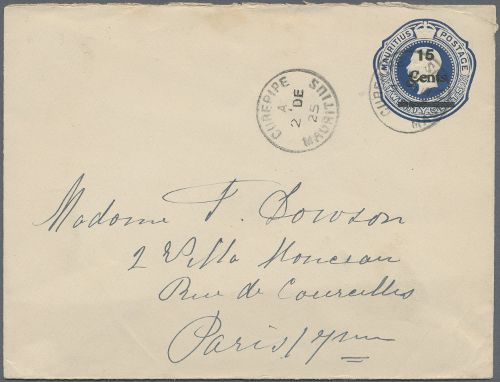 MAURITIUS POSTAGE
15
Cents
CUREPIPE
A
2 DE
25
MAURITIUS
CURE
MA
Madame F. Dowson
2 Villa Monceau
Rue de Courcelles
Paris / 17me